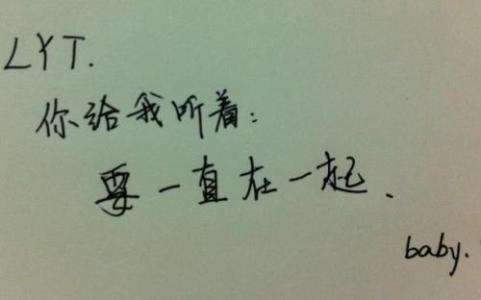 LYT.
你给我听着:
要一直在一起.
baby.